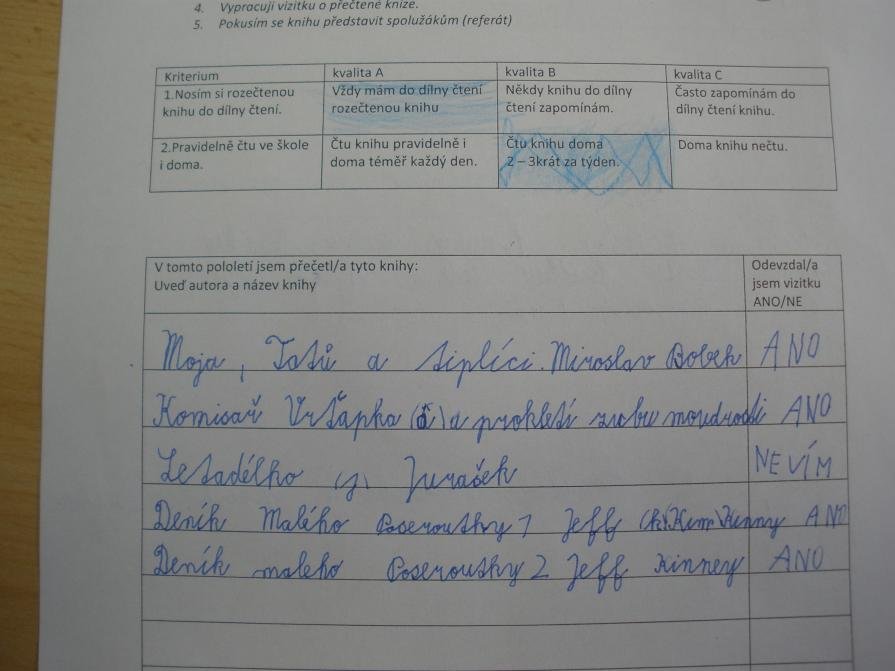 4. Vypracuji vizitku o přečtené knize.
5. Pokusím se knihu představit spolužákům (referát)
Kriterium kvalita A kvalita B kvalita C
1.Nosím si rozečtenou knihu do dílny čtení. Vždy mám do dílny čtení rozečtenou knihu Někdy knihu do dílny čtení zapomínám. Často zapomínám do dílny čtení knihu.
2.Pravidelně čtu ve škole i doma. Čtu knihu pravidelně i doma téměř každý den. Čtu knihu doma 2 – 3krát za týden. Doma knihu nečtu.
V tomto pololetí jsem přečetl/a tyto knihy:
Uveď autora a název knihy
Odevzdal/a
jsem vizitku
ANO/NE
Moja, Tatů a siplíci. Miroslav Bobek ANO
Komisař Vrťapka (č) a prokletí zubu moudrosti ANO
Letadélko (y) Juráček NEVÍM
Deník Malého Poseroutky 1 Jeff (k) Kinny ANO
Deník maleho Poseroutky 2 Jeff Kinney ANO